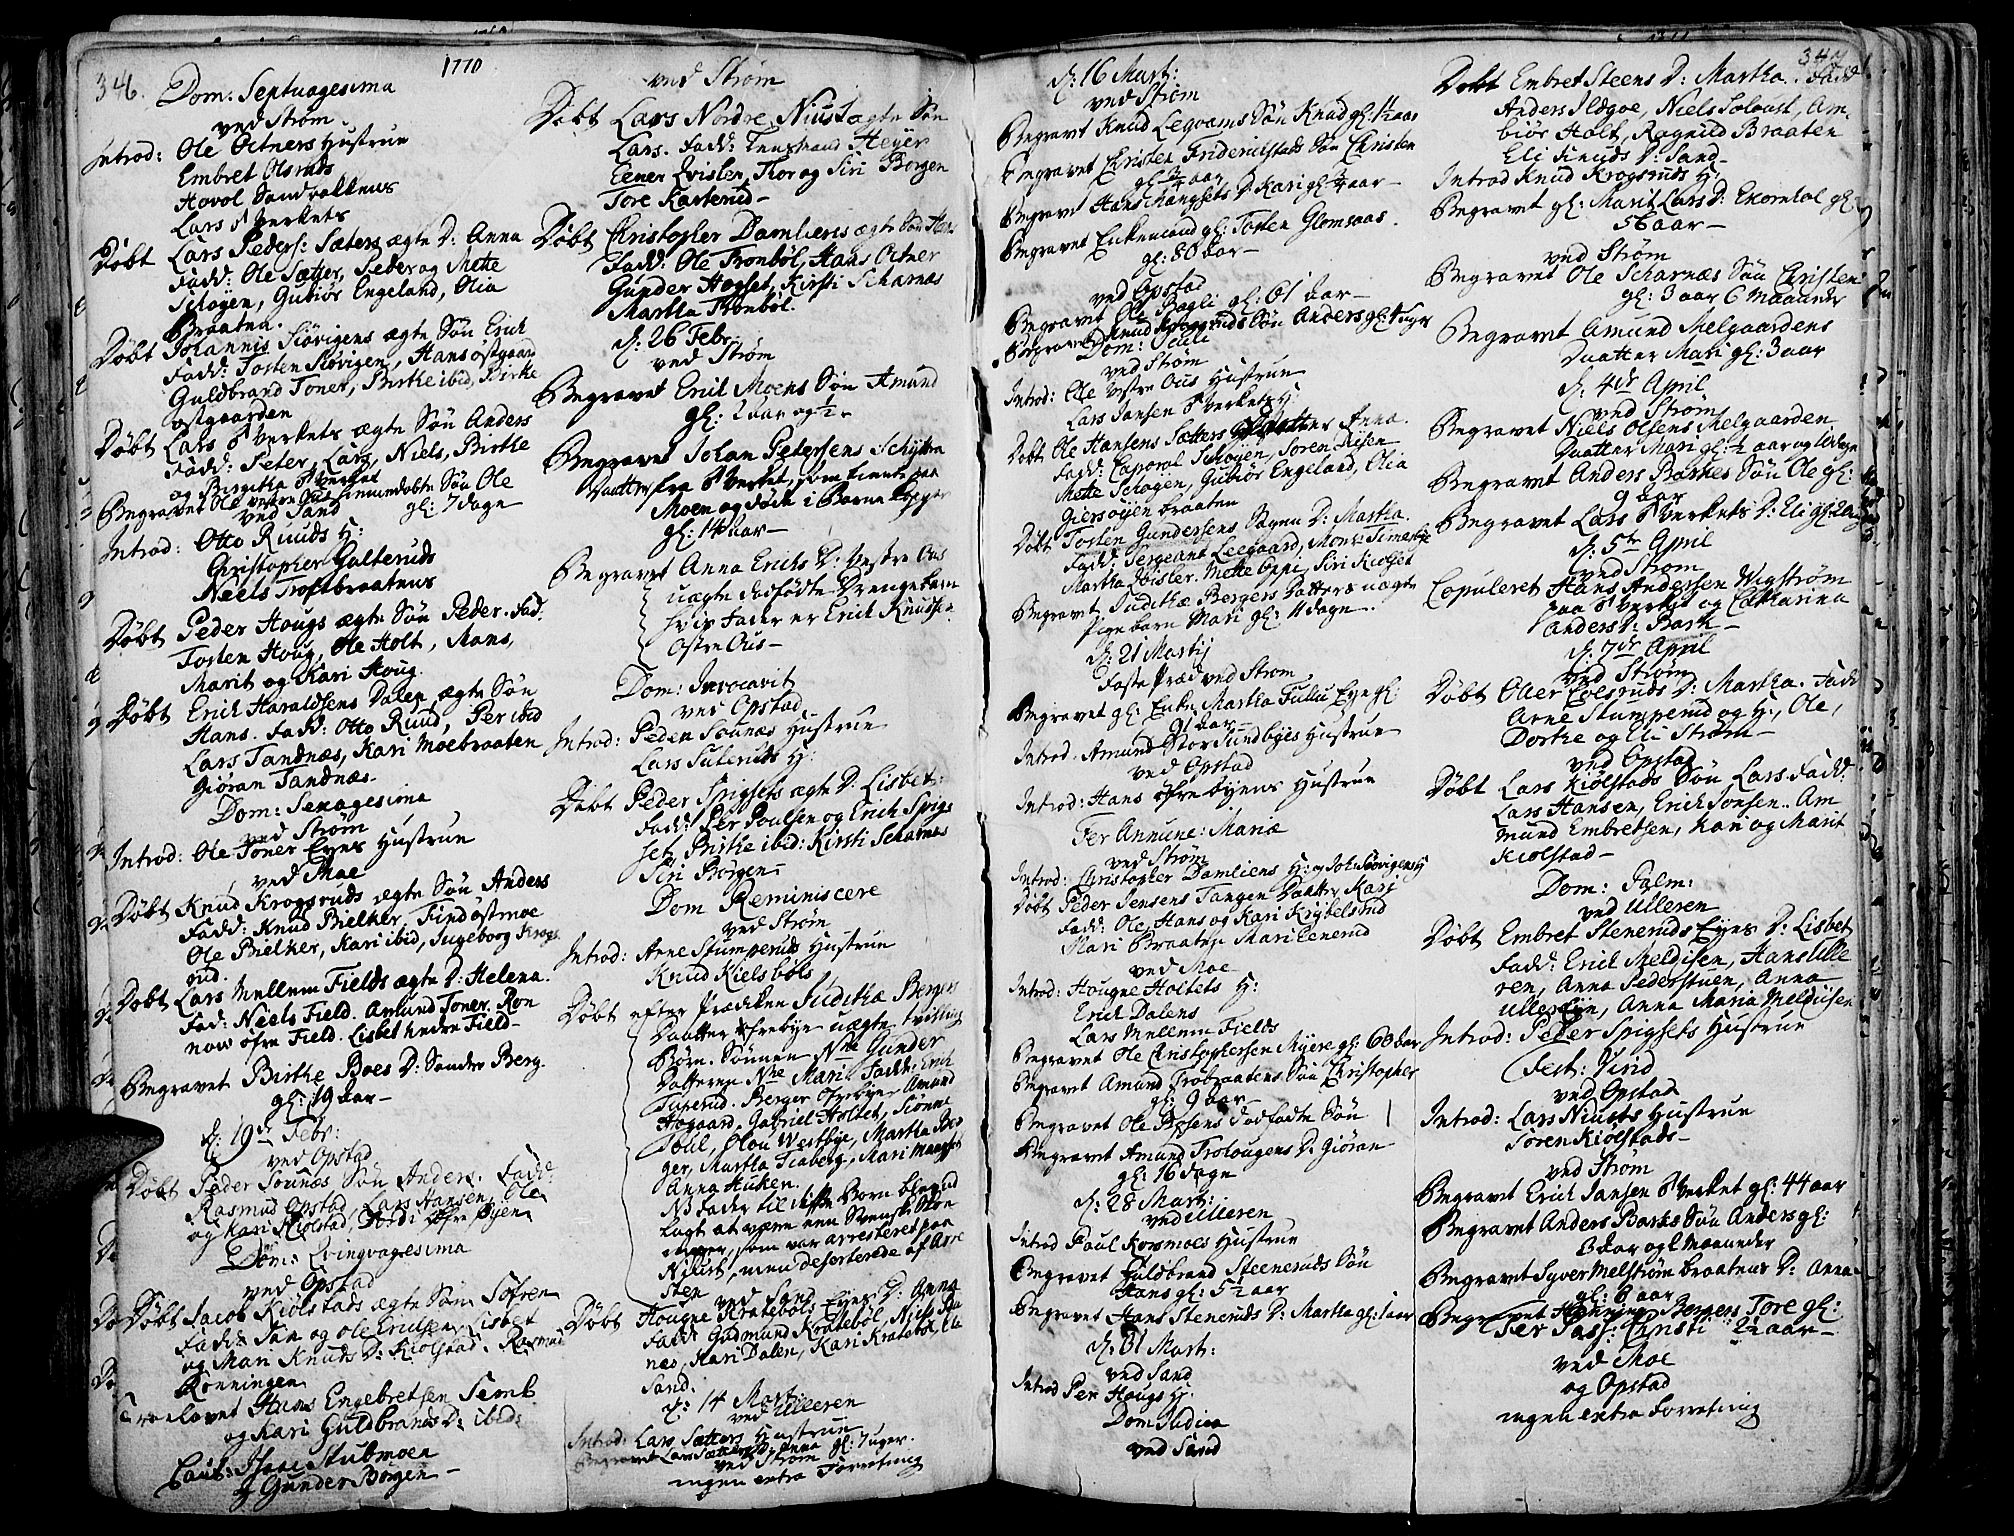 346.
1770
Dom: Septuagesima
ved Strøm.
Introd: Ole Ostners Hustrue
Embret Olsruds
Hovol Sandbakkens
Lars Verkets
Døbt Lars Peders: Sæters ægte D: Anna
Fadd: Ole Sætter, Peder og Mette
Schøyen, Gubiør Engeland, Olia
Braaten.
Døbt Johannis Siøvigens ægte Søn Erich
Fadd: Tosten Siøvigen, Hans østgaard
Guldbrand Toner, Birthe ibid, Birthe
østgaarden
Døbt Lars Verkets ægte Søn Anders
Fadd: Peter, Lars, Niels, Birthe
og Birgitha Verket
Begravet Ole vestre Ous hiemedøbte Søn Ole
ved Sand gl: 7 dage
Introd: Otto Ruuds H:
Christopher Galteruds
Neels Troftbraatens
Døbt Peder Hougs ægte Søn Peder. Fad.
Tosten Houg, Ole Holt, Hans,
Marit og Kari Houg.
Døbt Erich Haraldsens Dalen ægte Søn
Hans. Fadd: Otto Ruud, Per ibid
Lars Tandnæs, Kari Moebraaten
Giøran Tandnæs.
Dom: Sexagesima
ved Strøm
Introd: Ole Toner Eyes Hustrue
ved Moe
Døbt Knud Krogsruds ægte Søn Anders
Fadd: Knud Bielker, Find østmoe
Ole Bielker, Kari ibid, Ingeborg Krogs
rud.
Døbt Lars Mellem Fields ægte D: Helena.
Fad: Niels Field. Amund Toner. Ron
now øfre Field. Lisbet nedre Field-
Begravet Birthe Boes D: Søndre Berg.
gl: 19 aar-
d: 19de Febr:
ved Opstad
Døbt Peder Sounæs Søn Anders. Fadd:
Rasmus Opstad, Lars Hansen, Ole
og Kari Kiølstad, Jordi Øfre Øyen
Dom: Qvinqvagesima
ved Opstad
Døbt Jacob Kiølstads ægte Søn Søfren
Fadd: Jan og Ole Erichsen Lisbet
og Mari Knuds D: Kiølstad. Rasmus
Rønningen
Trolovet Hans Engebretsen Semb
og Kari Guldbrands D: ibid:
Caut: Isaac Stubmoen
og Gunder Borgen -
ved Strøm
Døbt Lars Nordre Niust ægte Søn
Lars. Fadd: Heyer
Eener Qvisler, Thor og Siri Borgen
Tore Kasterud-
Døbt Christopher Damliens ægte Søn Hans
Fadd: Ole Trondbøl, Hans Ostner
Gunder Hogset, Kirsti Scharnæs
Martha Trondbøl.
d: 26 Febr:
ved Strøm
Begravet Erich Moens Søn Amund
gl: 2 aar og ½ -
Begravet Johan Pedersens Schytten
Daatter fra Verket, som tiente paa
Moen og døde i Barne Kopper
gl: 14 aar-
Begravet Anna Erichs D: Vestre Ous
uægte dødfødte Drengebarn
hvis Fader er Erich Knudsen
Østre Ous-
Dom: Invocavit
ved Opstad
Introd: Peder Sounæs Hustrue
Lars Suteruds H:
Døbt Peder Spigsets ægte D: Lisbet:
Fadd: Per Poulsen og Erich Spigs
set, Birthe ibid: Kirsti Scharnæs
Siri Borgen-
Dom Reminiscere
ved Strøm
Introd: Arne Stumperuds Hustrue
Knud Kielsbøls
Døbt efter Prædiken Judithæ Bergers
Daatter Øfrebye uægte tvilling
Børn. Sønnen Nne Gunder
Datteren Nne Mari. Fadd: Erich
Tuperud. Berger Øfrebye, Amund
Hogaard, Gabriel Holtet, Siønne
Poul, Olou Westbye, Martha Ber
ger, Martha Fiaberg, Mari Mangset
Anna Huken.
NB Fader til disse Børn blev ud
lagt at være een Svensk Kon
ninger, som var arresteret paa
Niust, men deserterede af Arre
sten
ved Sand
Døbt Hougne Kratebøls Eyes D: Anna
Fadd: Gudmund Kratebøl, Niels Tan
næs, Kari Dalen, Kari Kratebøl, Eli
Sand.
d: 14 Mart:
ved Ulleren
Introd: Lars Sætters Hustrue
Begravet Lars Sætters D: Anna gl: 7 uger.
ved Strøm
ingen extra Forretning
d: 16 Mart:
ved Strøm
Begravet Knud Legvams Søn Knud gl: 1½ aar
Begravet Christen Friderichstads Søn Christen
gl: ¾ aar
Begravet Hans Mangsets D: Kari gl: ¾ aar-
Begravet Enkemand gl: Tosten Glomsaas.
gl: 80 aar-
ved Opstad
Begravet Ole Bagli gl: 61 aar-
Begravet Knud Krogsruds Søn Anders gl: 4 uger
Dom: Oculi
ved Strøm
Introd: Ole Vestre Ous Hustrue
Lars Jansen Verkets H:
Døbt Ole Hansens Sætters Daatter Anna.
Fadd: Caporal Schøyen, Søren Risen
Mette Schøyen, Gubiør Engeland, Olia
Giersøyen braaten
Døbt Tosten Gundersens Bagen D: Martha.
Fadd: Sergeant Leegaard, Mons: Timestie
Martha Qvisler. Mette Oppi, Siri Kiolset
Begravet Judithæ Bergers Datters uægte
Pigebarn Mari gl: 11 dage.
d: 21 Martij
Faste Præd ved Strøm
Begravet gl: Enke Martha Fulu Eye gl:
91 aar-
Introd. Amund Stor Sundbyes Hustrue
ved Opstad
Introd: Hans Øfre Øyens Hustrue
Fer Annunc: Mariæ
ved Strøm
Introd: Christopher Damliens H: og Joh: Siøvigens H
Døbt Peder Jensens Tangen Daatter Kari
Fadd: Ole, Hans og Kari Krybelsrud
Mari Braaten Mari Eenerud
ved Moe
Introd: Hougne Holtets H:
Erich Dalens
Lars Mellem Fields
Begravet Ole Christophersen Myere gl: 60 aar
Begravet Amund Trobraatens Søn Christopher
gl: 9 aar
Begravet Ole Børsens dødfødte Søn
Begravet Amund Trolougens D: Giøran
gl: 16 dage
d: 28 Mart:
ved Ulleren
Introd Paul Korsmoes Hustrue
Begravet Guldbrand Steeneruds Søn
Hans gl: 5½ aar
Begravet Hans Steneruds D: Martha gl: 1 aar
d: 31 Mart:
ved Sand
Introd Per Hougs H:
Dom Judica
ved Sand
347.
Døbt Embret Steens D: Martha. Fadd
Anders Ildgoe, Niels Soloust, Am-
biør Holt, Rognild Braaten
Eli Knuds D: Sand-
Introd Knud Krogsruds H:
Begravet gl: Marit Lars D: Ekornhol gl:
56 aar-
ved Strøm
Begravet Ole Scharnæs Søn Christen
gl: 3 aar 6 Maaneder
Begravet Amund Melgaardens
Daatter Mari gl: 3 aar
d: 4de April
ved Strøm
Begravet Niels Olsens Melgaarden
Daatter Mari gl: ½ aar og 14 dage
Begravet Anders Barkes Søn Ole gl:
9 aar
Begravet Lars Verkets D: Eli gl:
d: 5te April
ved Strøm
Copuleret Hans Andersen Wigstrøm
paa Verket og Catharina
Anders D: Bark-
d: 7de April
ved Strøm
Døbt Oller Evesruds D: Martha. Fadd
Arne Stumperud og H:, Ole,
Dorthe og Eli Strøm-
ved Opstad
Døbt Lars Kiølstads Søn Lars Fadd:
Lars Hansen, Erich Jonsen.. Am
mund Embretsen, Kari og Marit
Kiølstad-
Dom: Palm:
ved Ulleren
Døbt Embret Steneruds Eyes D: Lisbet
Fadd: Erich Meldisen, Hans Ulle
ren, Anna Pederstuen, Anna
Ullerøyen, Anna Maria Meldiisen
Introd: Peder Spigsets Hustrue
Fest: Virid
ved Opstad
Introd: Lars Niusts Hustrue
Søren Kiølstads-
ved Strøm
Begravet Erich Jansen Verket gl: 44 aar
Begravet Anders Barks Søn Anders gl:
3 aar og 2 maaneder
Begravet Syver Melstrøm braatens D: Anna
gl: 8 aar
Begravet Bergers Tore gl:
2½ aar-
Fer Pass: Christi
ved Moe
og Opstad
ingen extra Forretning